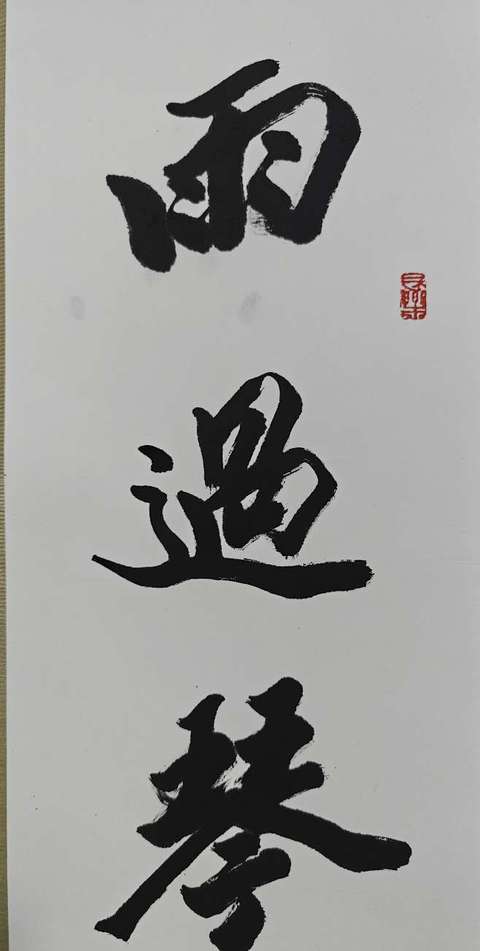 雨過琴